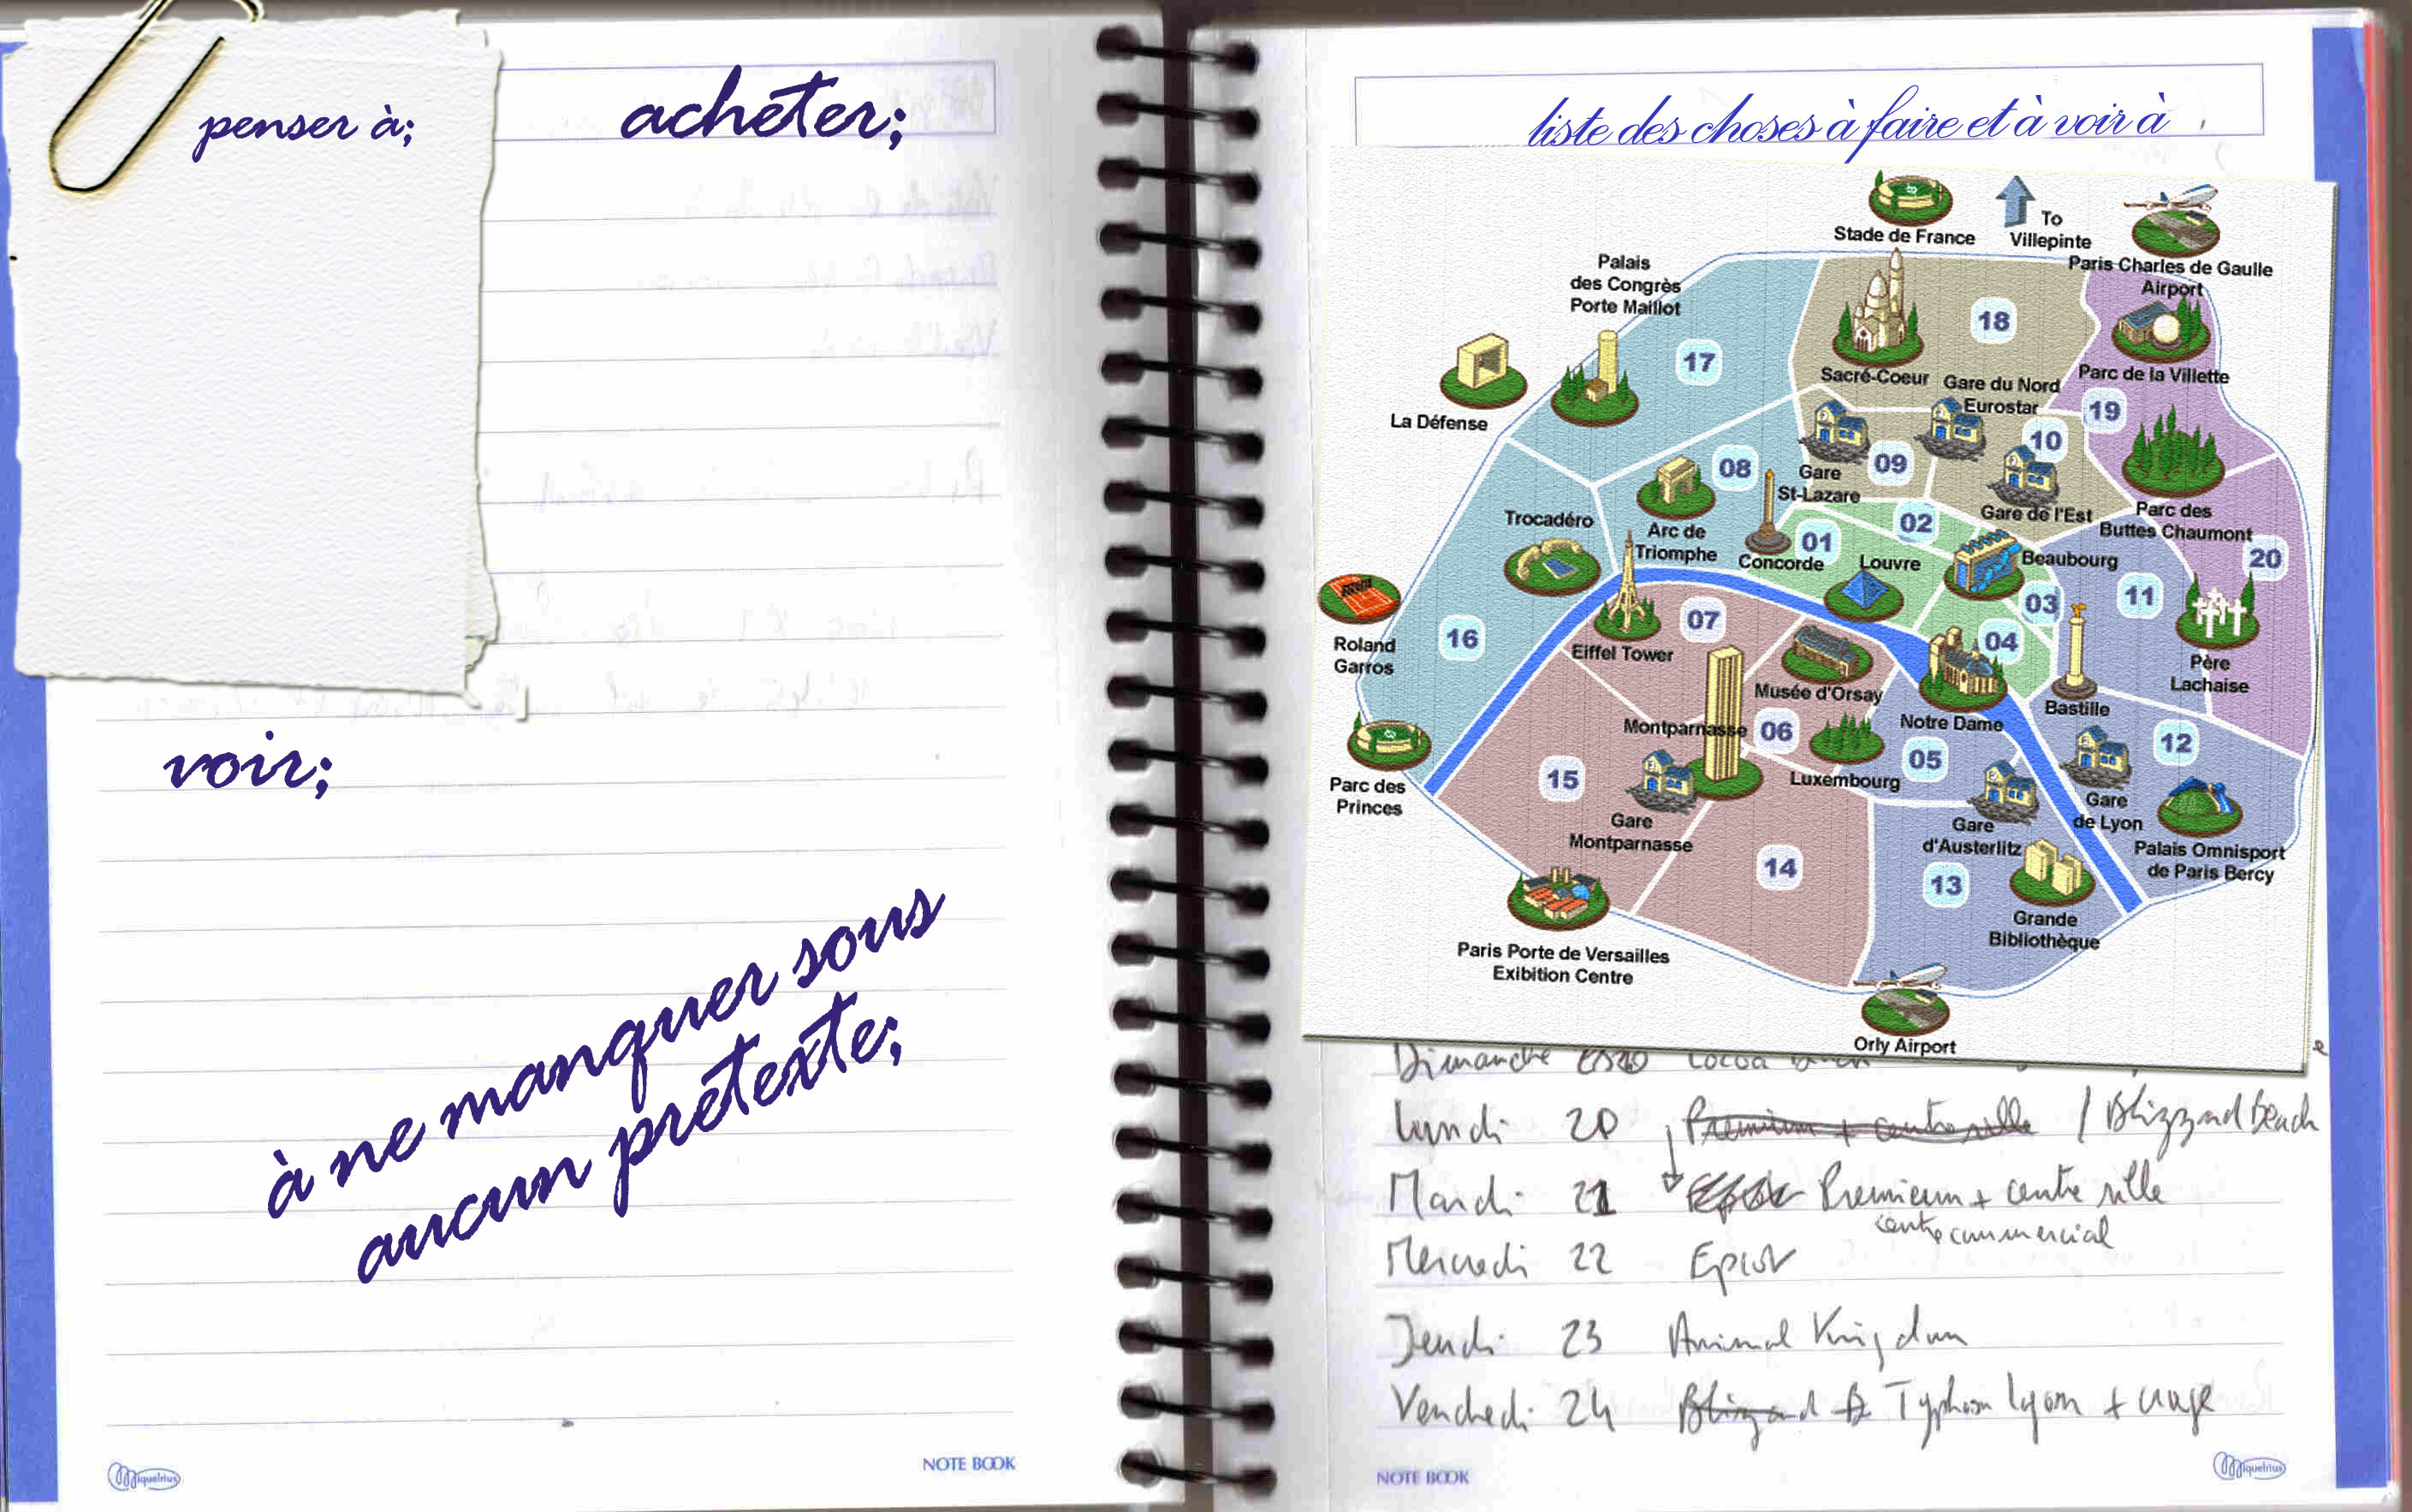 penser à;
acheter;
voir;
à ne manquer sous
aucun prétexte;
Miquelrius
NOTE BOOK
liste des choses à faire et à voir à
Stade de France
To
Villepinte
Paris Charles de Gaulle
Airport
Palais
des Congrès
Porte Maillot
La Défense
17
18
Sacré-Coeur
Gare du Nord
Eurostar
Parc de la Villette
19
10
09
08
Gare
St-Lazare
Gare de l'Est
Parc des
Buttes Chaumont
Trocadéro
Arc de
Triomphe
Concorde
01
02
Louvre
Beaubourg
20
03
11
04
Roland
Garros
16
Eiffel Tower
07
Musée d'Orsay
Notre Dame
Bastille
Père
Lachaise
Montparnasse
06
Luxembourg
05
12
Parc des
Princes
15
Gare
Montparnasse
14
Gare
d'Austerlitz
Gare
de Lyon
Palais Omnisport
de Paris Bercy
13
Grande
Bibliothèque
Paris Porte de Versailles
Exibition Centre
Orly Airport
Dimanche
Lundi 20 Premium + centre ville / Blizzard Beach
Mardi 21 Epcot Premium + centre ville
centre commercial
Mercredi 22 Epcot
Jeudi 23 Animal Kingdom
Vendredi 24 Blizzard Typhoon Lagon +
NOTE BOOK
Miquelrius